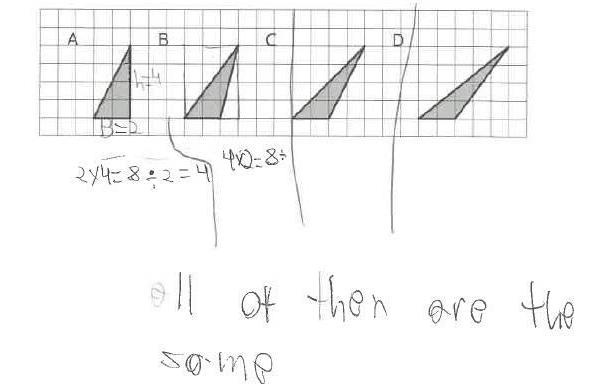 A B C D
h=4
B=2
2x4=8÷2=4
4x2=8÷
all of then are the
same